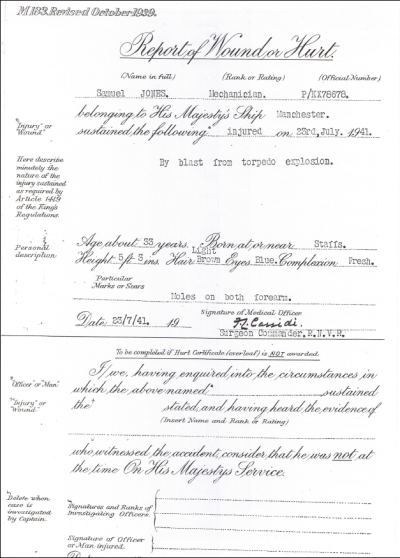 M 183. Revised October 1939.
Report of Wound or Hurt.
(Name in full) (Rank or Rating) (Official Number)
Samuel JONES. Mechanician. P/KX78678.
belonging to His Majesty's Ship Manchester.
"Injury" or "Wound".
sustained the following injured on 23rd, July. 1941.
Here describe minutely the nature of the injury sustained as required by Article 1419 of the King's Regulations.
By blast from torpedo explosion.
Personal description
Age about 33 years, Born at or near Staffs.
Light
Height 5 ft 3 ins. Hair Brown Eyes Blue. Complexion Fresh.
Particular Marks or Scars
Moles on both forearm.
Signature of Medical Officer
Date 23/7/41. 19 J. Cassidi.
Surgeon Commander, R.N.V.R.
To be completed if Hurt Certificate (overleaf) is NOT awarded.
I, we, having enquired into the circumstances in
"Officer" or "Man"
which the above named sustained
"Injury" or "Wound".
the stated, and having heard the evidence of
(Insert Name and Rank or Rating)
who witnessed the accident, consider that he was not at
the time On His Majesty's Service.
Delete when case is investigated by Captain.
Signatures and Ranks of Investigating Officers.
Signature of Officer or Man injured.